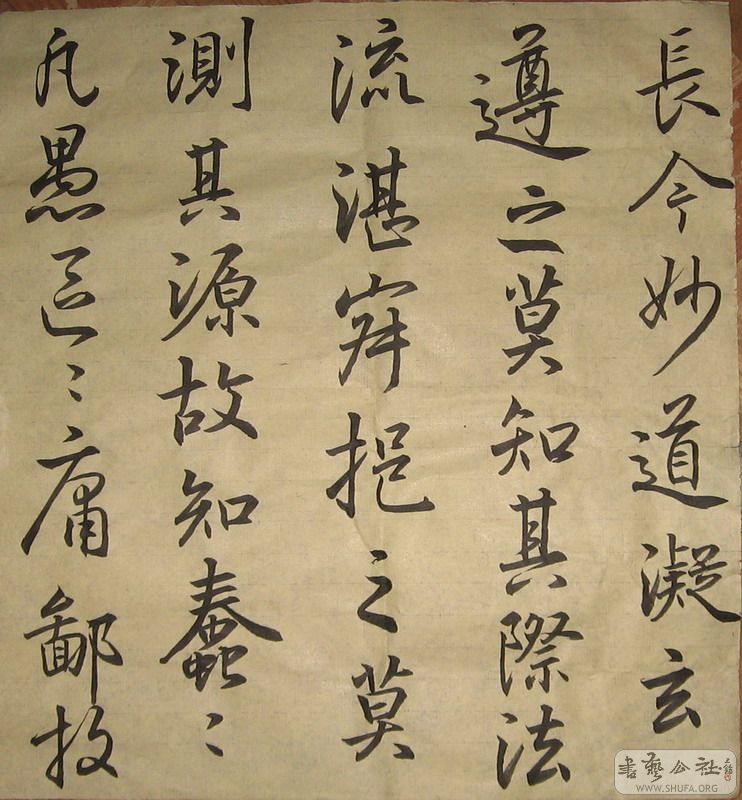 長今妙道凝玄
遵之莫知其際法
流湛寂挹之莫
測其源故知蠢々
凡愚區々庸鄙投
書藝公社
WWW.SHUFA.ORG